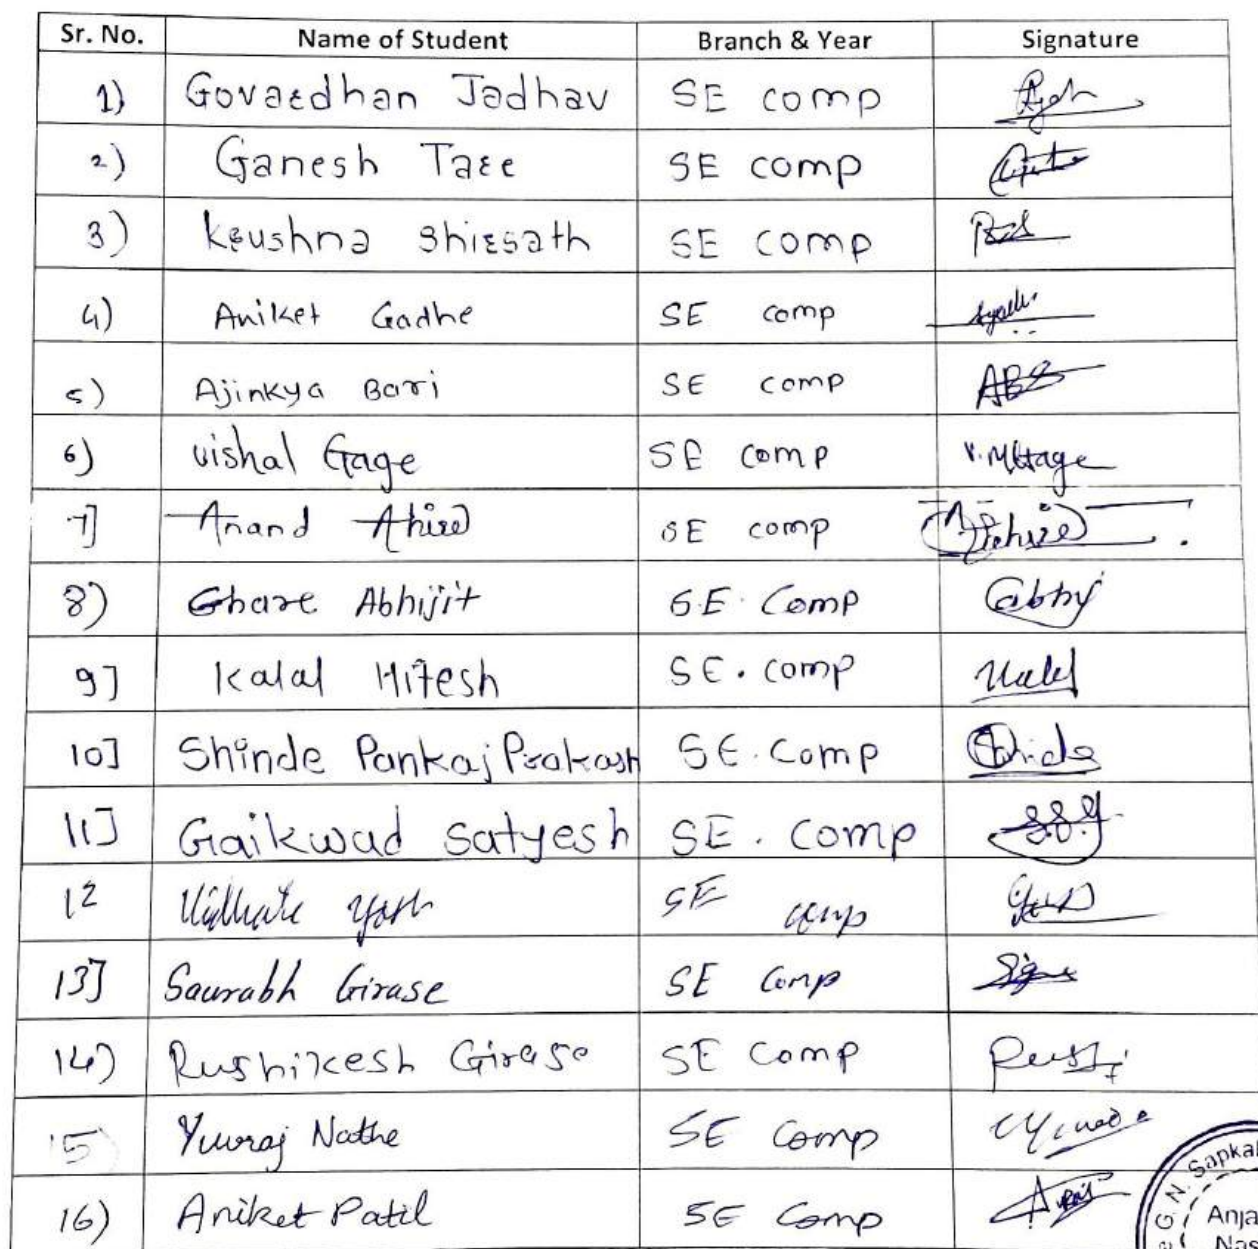 Sr. No. Name of Student Branch & Year Signature
1) Govardhan Jadhav SE comp
2) Ganesh Tare SE comp
3) Krushna Shirsath SE comp
4) Aniket Gadhe SE comp
5) Ajinkya Bari SE comp ABS
6) vishal Gage SE comp V.M.Gage
7] Anand Ahire SE comp Ahire
8) Ghare Abhijit S.E. Comp abhij
9] Kalal Hitesh SE. comp
10] Shinde Pankaj Prakash SE. Comp Shinde
11] Gaikwad Satyesh SE. comp S.S.G
12 Vidhate Yash SE comp
13] Saurabh Girase SE Comp
14) Rushikesh Girase SE Comp Rushi
15) Yuvraj Nathe SE Comp
16) Aniket Patil SE Comp
G. N. Sapkal
Anja
Nas